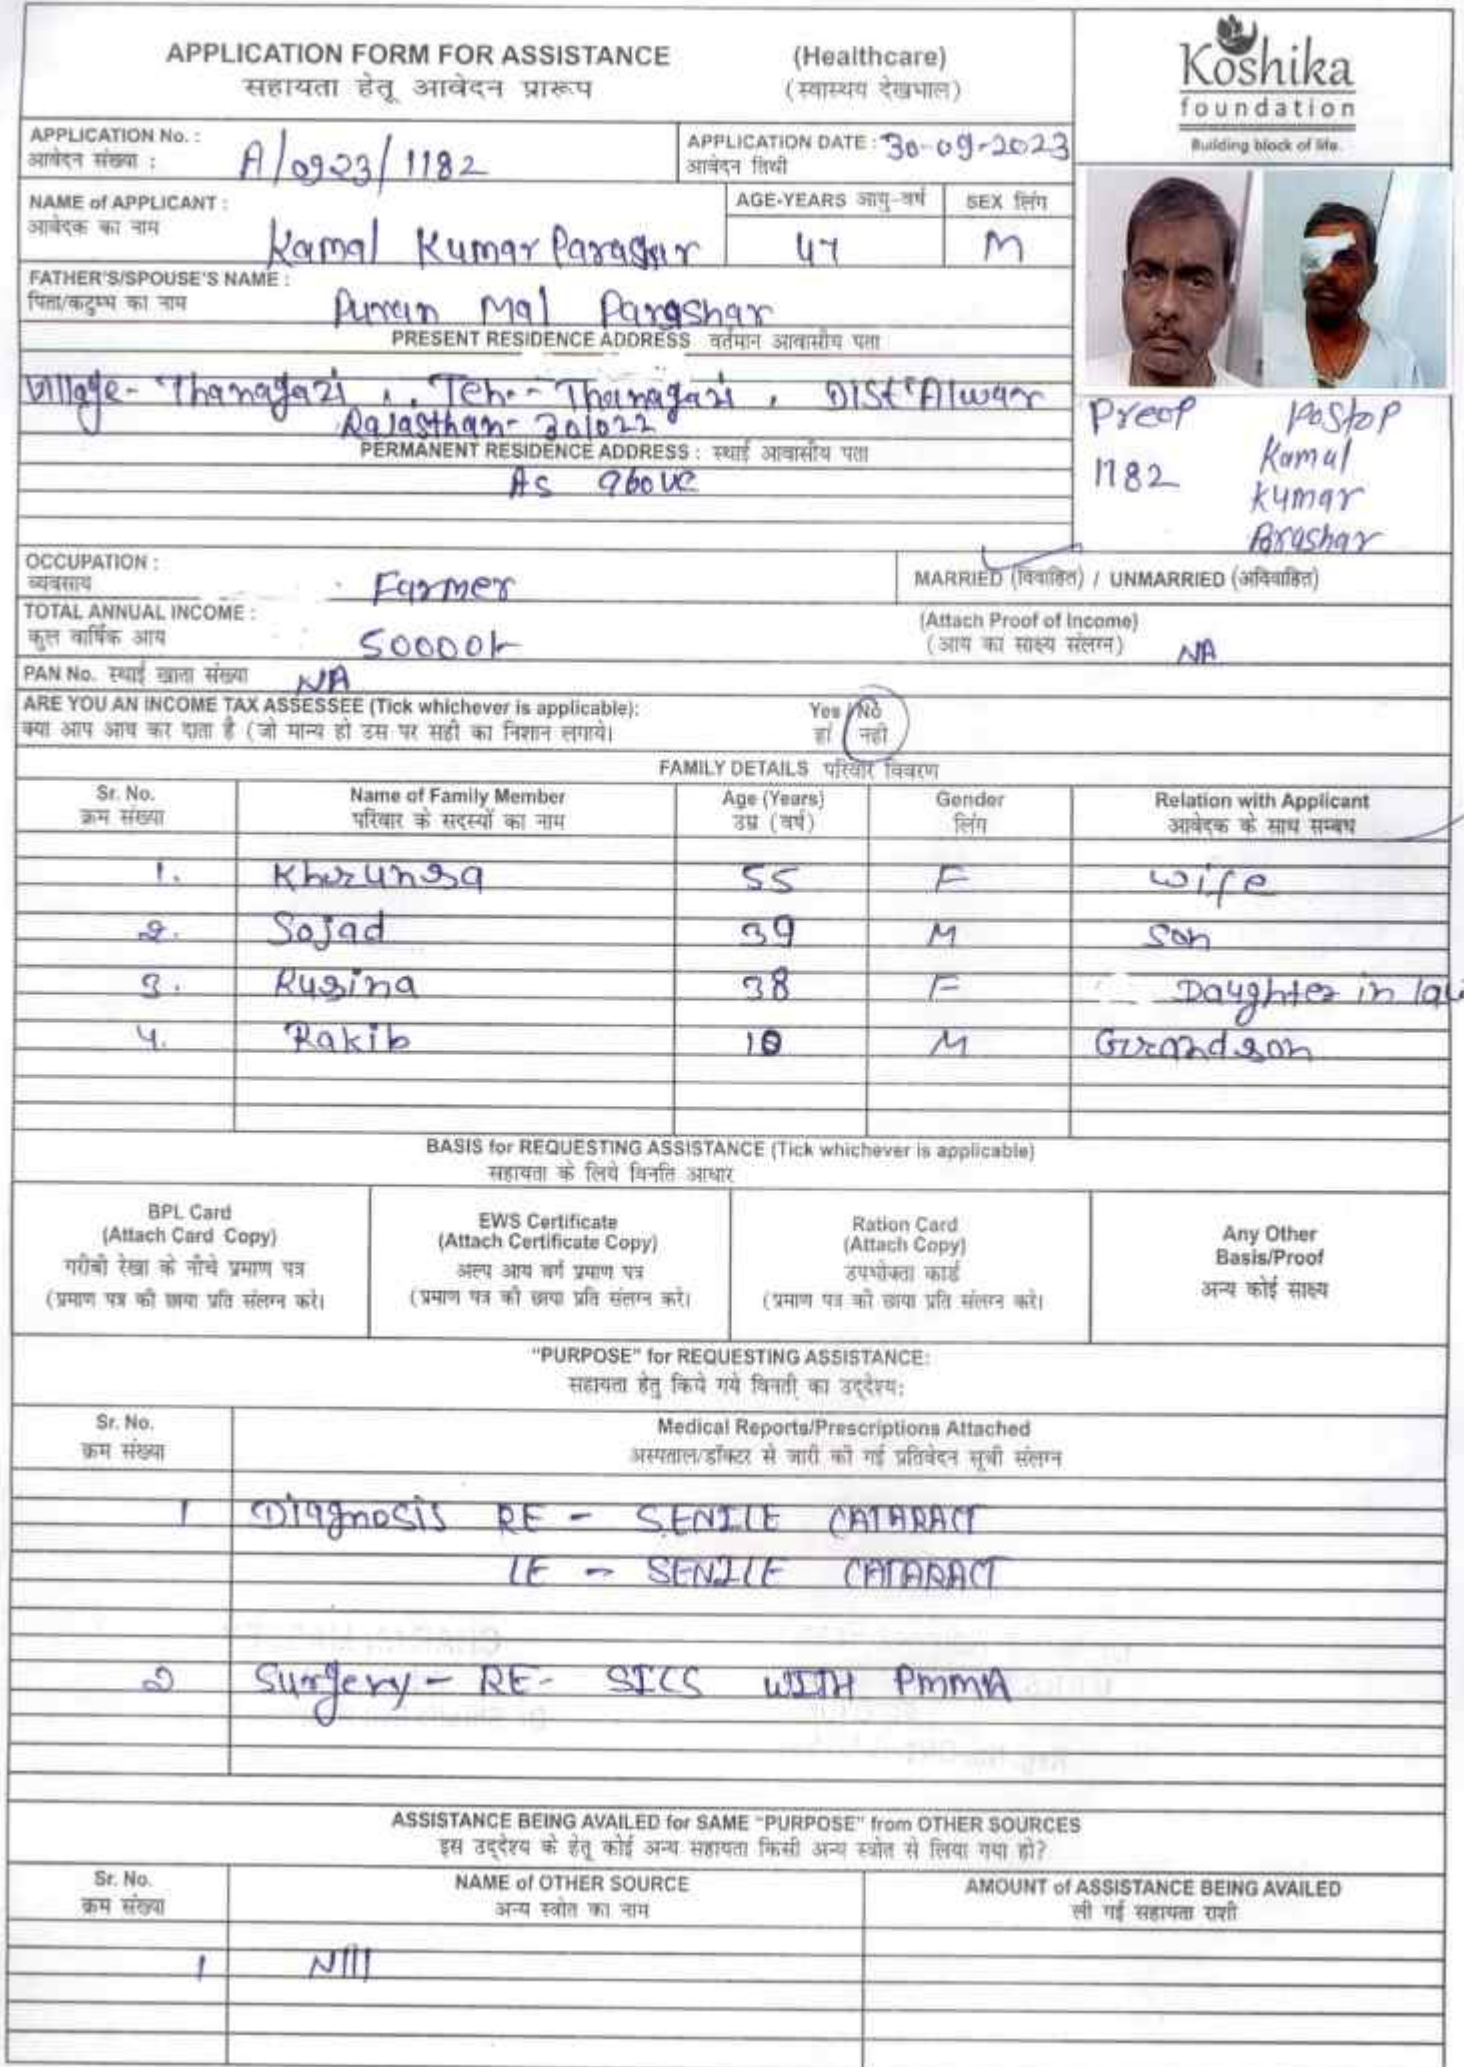 APPLICATION FORM FOR ASSISTANCE (Healthcare)
सहायता हेतू आवेदन प्रारूप (स्वास्थय देखभाल)
Koshika
foundation
Building block of life.
APPLICATION No. :
आवेदन संख्या : A/0923/1182
APPLICATION DATE : 30-09-2023
आवेदन तिथी
NAME of APPLICANT :
आवेदक का नाम Kamal Kumar Parashar
AGE-YEARS आयु-वर्ष
47
SEX लिंग
M
FATHER'S/SPOUSE'S NAME :
पिता/कटुम्भ का नाम Puran Mal Parashar
PRESENT RESIDENCE ADDRESS वर्तमान आवासीय पता
Village- Thanagazi , Teh.- Thanagazi , Dist: Alwar
Rajasthan- 301022
PERMANENT RESIDENCE ADDRESS : स्थाई आवासीय पता
As above
Preop Postop
1182 Kamal
Kumar
Parashar
OCCUPATION :
व्यवसाय Farmer
MARRIED (विवाहित) / UNMARRIED (अविवाहित)
TOTAL ANNUAL INCOME :
कुल वार्षिक आय 50000/-
(Attach Proof of Income)
(आय का साक्ष्य संलग्न) NA
PAN No. स्थाई खाता संख्या NA
ARE YOU AN INCOME TAX ASSESSEE (Tick whichever is applicable): Yes / No
क्या आप आय कर दाता है (जो मान्य हो उस पर सही का निशान लगाये। हां / नही
FAMILY DETAILS परिवार विवरण
Sr. No. Name of Family Member Age (Years) Gender Relation with Applicant
क्रम संख्या परिवार के सदस्यों का नाम उम्र (वर्ष) लिंग आवेदक के साथ सम्बध
1. Khurunsa 55 F wife
2. Sojad 39 M Son
3. Rusina 38 F Daughter in law
4. Rakib 10 M Grandson
BASIS for REQUESTING ASSISTANCE (Tick whichever is applicable)
सहायता के लिये विनति आधार
BPL Card
(Attach Card Copy)
गरीबी रेखा के नीचे प्रमाण पत्र
(प्रमाण पत्र की छाया प्रति संलग्न करे।
EWS Certificate
(Attach Certificate Copy)
अल्प आय वर्ग प्रमाण पत्र
(प्रमाण पत्र की छाया प्रति संलग्न करे।
Ration Card
(Attach Copy)
उपभोक्ता कार्ड
(प्रमाण पत्र की छाया प्रति संलग्न करे।
Any Other
Basis/Proof
अन्य कोई साक्ष्य
"PURPOSE" for REQUESTING ASSISTANCE:
सहायता हेतु किये गये विनती का उद्देश्य:
Sr. No. Medical Reports/Prescriptions Attached
क्रम संख्या अस्पताल/डॉक्टर से जारी की गई प्रतिवेदन सूची संलग्न
1 Diagnosis RE - SENILE CATARACT
LE - SENILE CATARACT
2 Surgery - RE- SICS WITH PMMA
ASSISTANCE BEING AVAILED for SAME "PURPOSE" from OTHER SOURCES
इस उद्देश्य के हेतू कोई अन्य सहायता किसी अन्य स्त्रोत से लिया गया हो?
Sr. No. NAME of OTHER SOURCE AMOUNT of ASSISTANCE BEING AVAILED
क्रम संख्या अन्य स्त्रोत का नाम ली गई सहायता राशी
1 Nill